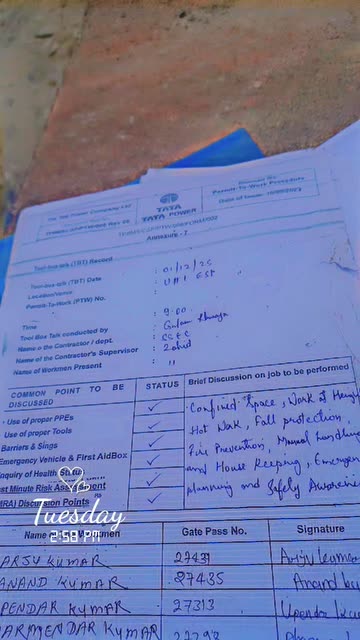 The Tata Power Company Ltd.
Permit-To-Work Procedure
Date of Issue:
TATA
TATA POWER
Annexure - 7
Tool-box-talk (TBT) Record
Tool-box-talk (TBT) Date : 01/12/25
Location/Venue :
Permit-To-Work (PTW) No. :
Time : 9:00
Tool Box Talk conducted by
Name of the Contractor / dept.
Name of the Contractor's Supervisor : Zahid
Name of Workmen Present : "
COMMON POINT TO BE DISCUSSED
STATUS
Brief Discussion on job to be performed
Use of proper PPEs ✓
Use of proper Tools ✓
Barriers & Sings ✓
Emergency Vehicle & First AidBox ✓
nquiry of Health Status ✓
st Minute Risk Assessment ✓
MRA) Discussion Points ✓
Confined Space, Work at Heigh
Hot Wok, Fall protection,
Fire Prevention, Manual handling
and House Keeping, Emergen
planning and Safety Awarene
Tuesday
2:58 PM
Name
men
Gate Pass No.
Signature
ARJU KUMAR 27431
ANAND KUMAR 27435 Anand
PENDAR KUMAR 27313 Upendar
ARMENDAR KUMAR